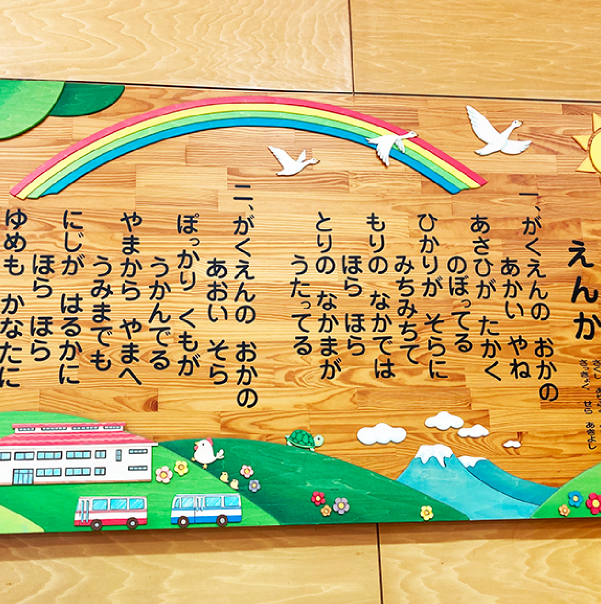 えんか
一、がくえんの おかの
あかい やね
あさひが たかく
のぼってる
ひかりが そらに
みちみちて
もりの なかでは
ほら ほら
とりの なかまが
うたってる
二、がくえんの おかの
あおい そら
ぽっかり くもが
うかんでる
やまから やまへ
うみまでも
にじが はるかに
ほら ほら
ゆめも かなたに